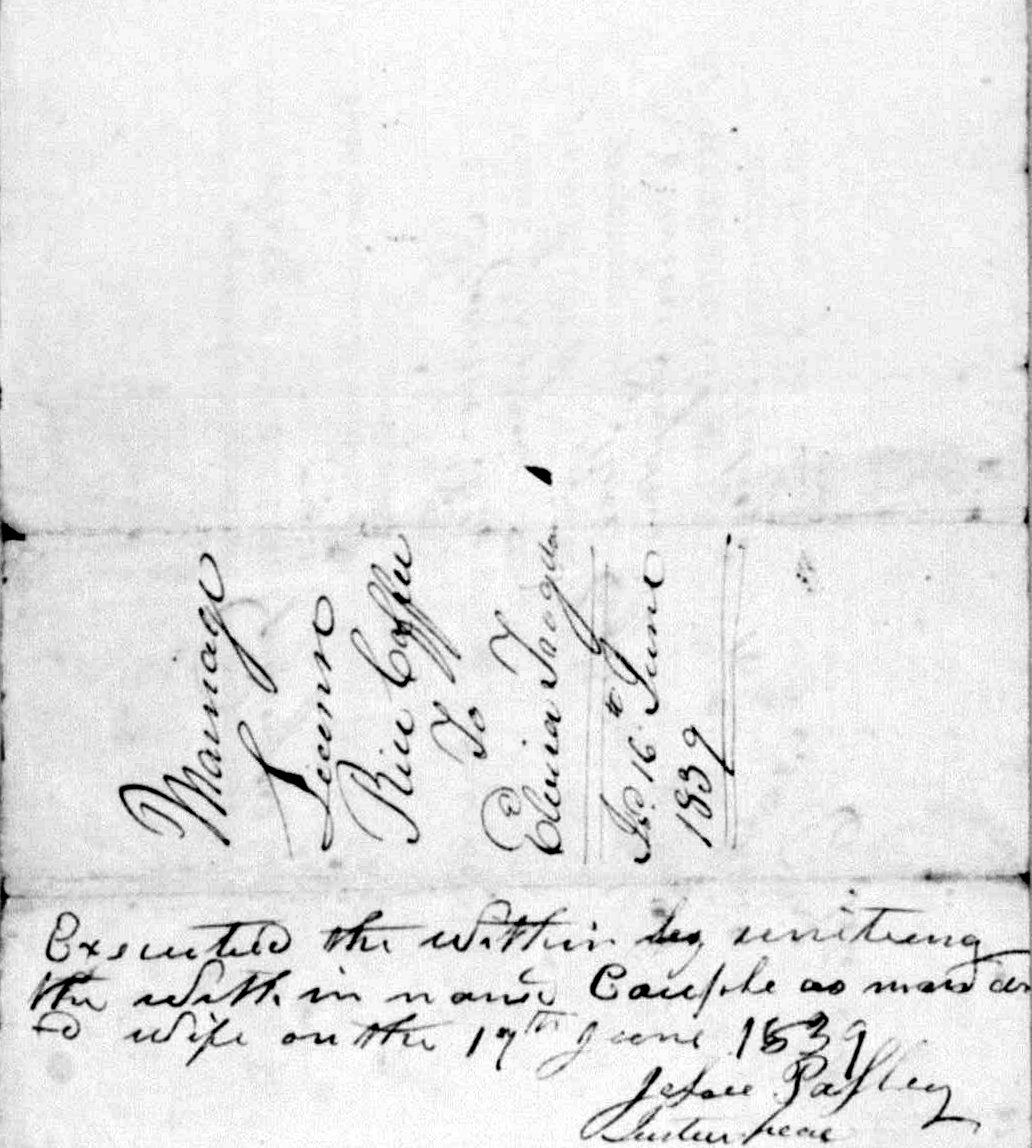 Marriage
License
Rice Coffee
To
Elvira
Iss 16th June
1839
Executed the within by uniteing
the within named Couple as man an
d wife on the 17th June 1839
Jesse Pasley
Justice peace